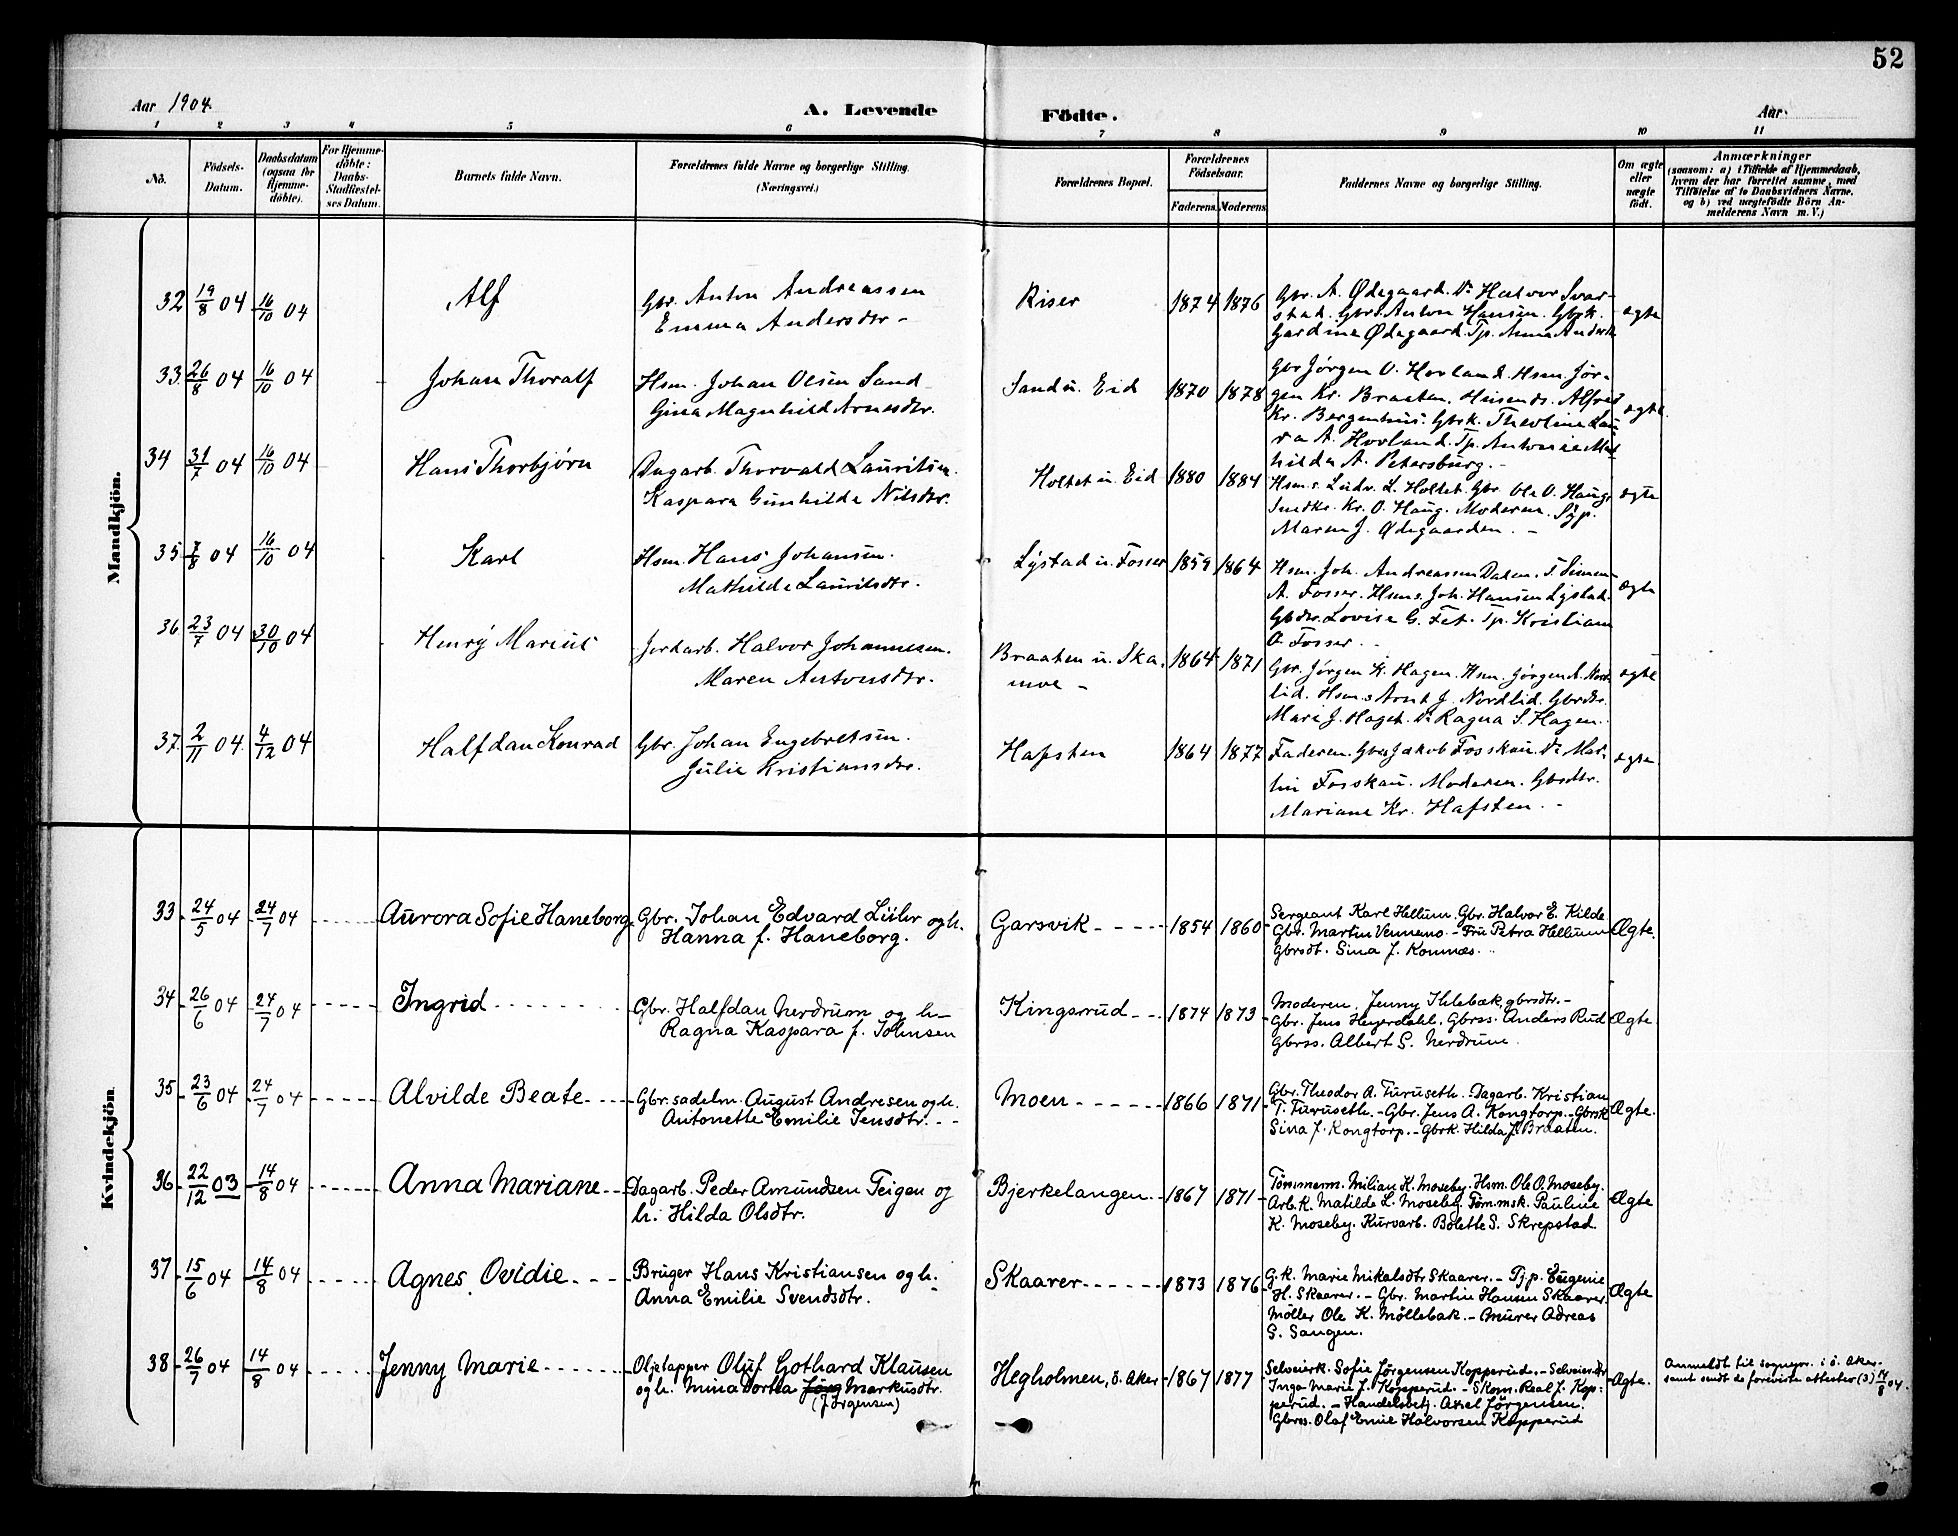 52
Aar 1904.
A. Levende Födte.
Aar
1 2 3 4 5 6 7 8 9 10 11
No.
Födsels-
Datum.
Daabsdatum
(ogsaa for
Hjemme-
döbte).
For Hjemme-
döbte:
Daabs-
Stadfæstel-
ses Datum.
Barnets fulde Navn.
Forældrenes fulde Navne og borgerlige Stilling.
(Næringsvei.)
Forældrenes Bopæl.
Forældrenes
Födselsaar.
Faderens. Moderens.
Faddernes Navne og borgerlige Stilling.
Om ægte
eller
uægte
födt.
Anmærkninger
(saasom: a) i Tilfælde af Hjemmedaab,
hvem der har forrettet samme, med
Tilföielse af to Daabsvidners Navne,
og b) ved uægtefödte Börn An-
melderens Navn m. V.)
Mandkjön.
32 19/8 04 16/10 04 Alf
Gbr. Anton Andreassen
Emma Andersdtr -
Riser 1874 1876
Gbr. A. Ødegaard. Do Halvor Svar-
stad. Gbrs Anton Hansen. Gbrk.
Gardine Ødegaard. Tp. Anna Andersd.
ægte
33. 26/8 04 16/10 04 Johan Thoralf
Hsm. Johan Olsen Sand
Gina Magnhild Arnesdtr.
Sand u. Eid 1870 1878
Gbr Jørgen O. Hovland. Hsm. Jør-
gen Kr. Braaten. Alfred
Kr. Bergenhus. Gbrk. Theoline Lau
ra A. Hovland. Tp. Antonie Mat
hilde A. Petersburg. -
ægte.
34 31/7 04 16/10 04 Hans Thorbjørn
Dagarb. Thorvald Lauritsen.
Kaspara Gunhilde Nilsdtr.
Holtet u. Eid 1880 1884
Hsm.s Ludv. L. Holtet. Gbr. Ole O. Haug.
Smedkr. Kr. O. Haug. Moderen. Syp.
Maren J. Ødegaarden. -
ægte
35. 7/8 04 16/10 04 Karl
Hsm. Hans Johansen.
Mathilde Lauritsdtr.
Lystad u. Fosser 1859 1864
Hsm. Joh. Andreassen Dalen. T. Simen
A. Fosser. Hsms. Joh. Hansen Lystad.
Gbdtr. Lovise G. Fet. Tp. Kristian
O. Fosser.
ægte
36 23/7 04 30/10 04 Henry Marius
Jordarb. Halvor Johannesen.
Maren Antonsdtr.
Braaten u. Ska
moe - 1864 1871
Gbr. Jørgen K. Hagen. Hsm. Jørgen A. Nord
lid. Hsm.s Arnt J. Nordlid. Gbrdtr.
Mari J. Haget. Do Ragna S. Hagen.
ægte
37. 2/11 04. 4/12 04 Halfdan Konrad
Gbr. Johan Engebretsen.
Julie Kristiansdtr.
Hafsten 1864 1877
Faderen. Gbrs Jakob Fosskau. Do Mar-
tin Fosskau. Moderen. Gbrdtr.
Mariane Kr. Hafsten. -
ægte
Kvindekjön
33 24/5 04 24/7 04 Aurora Sofie Haneborg
Gbr. Johan Edvard Lühr og h.
Hanna f. Haneborg.
Garsvik 1854 1860
Sergeant Karl Hellum. Gbr. Halvor E. Kilde
Gbr. Martin Vennemo. - Fru Petra Hellum
Gbrsdt. Sina J. Komnæs.
Ægte.
34 26/6 04 24/7 04 Ingrid
Gbr. Halfdan Nerdrum og h-
Ragna Kaspara f. Johnsen
Kingsrud 1874 1873
Moderen, Jenny Ihlebæk, gbrsdtr. -
Gbr. Jens Heyerdahl. Gbrss. Anders Rud
Gbrss. Albert S. Nerdrum.
Ægte
35 23/6 04 24/7 04 Alvilde Beate
Gbr. sadelm. August Andresen og h.
Antonette Emilie Jensdtr.
Moen 1866 1871
Gbr. Theodor A. Turuseth. - Dagarb. Kristian
T. Turuseth. - Gbr. Jens A. Kongtorp. - Gbrsk
Sina J. Kongtorp. - Gbrk. Hilda J. Braaten.
Ægte.
36 22/12 03 14/8 04 Anna Mariane
Dagarb. Peder Amundsen Teigen og
h. Hilda Olsdtr.
Bjerkelangen 1867 1871
Tömmerm. Milian K. Moseby. Hsm. Ole O. Moseby.
Arb. k. Matilde L. Moseby. Töm.msk. Pauline
K. Moseby. Kurvarb. Bolette S. Skrepstad.
Ægte
37 15/6 04 14/8 04 Agnes Ovidie
Brüger Hans Kristiansen og h.
Anna Emilie Svendsdtr.
Skaarer 1873 1876
G. k. Marie Mikalsdtr Skaarer. - Tj. p. Eugenie
H. Skaarer. - Gbr. Martin Hansen Skaarer.
Möller Ole K. Möllebak. - Murer Adreas
S. Sangen.
Ægte
38 26/7 04 14/8 04 Jenny Marie
Oljetapper Oluf Gothard Klausen
og h. Mina Dortea Jörg Markusdtr.
(Jörgensen)
Hegholmen, ö. Aker 1867 1877
Selveierk. Sofie Jörgensen Kopperud. - Selveierdtr
Inga Marie J. Kopperud. - Skom. Roal J. Kop-
perud. - Handelsbetj. Axel Jörgensen.
Gbrss. Olaf Emil Halvorsen Kopperud
Ægte.
Anmeldt til sognepr. i ö. Aker.
samt sendt de foreviste attester (3) 14/8 04.